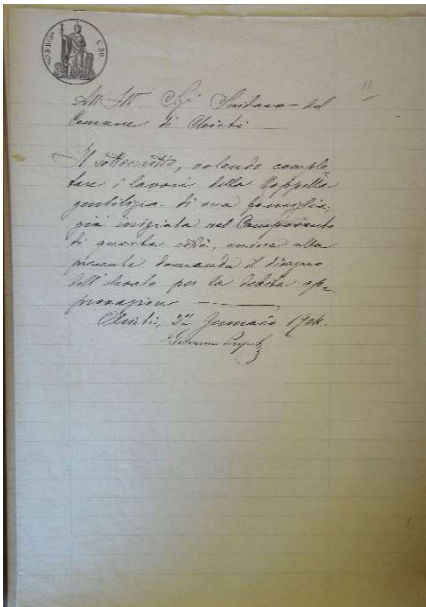 All' Ill. Sig. Sindaco del
Comune di Chieti
Il sottoscritto, volendo comple=
tare i lavori della Cappella
gentilizia di sua famiglia,
già iniziata nel Camposanto
di questa città, unisce alla
presente domanda il disegno
dell'elevato per la debita ap=
provazione
Chieti, Gennaio